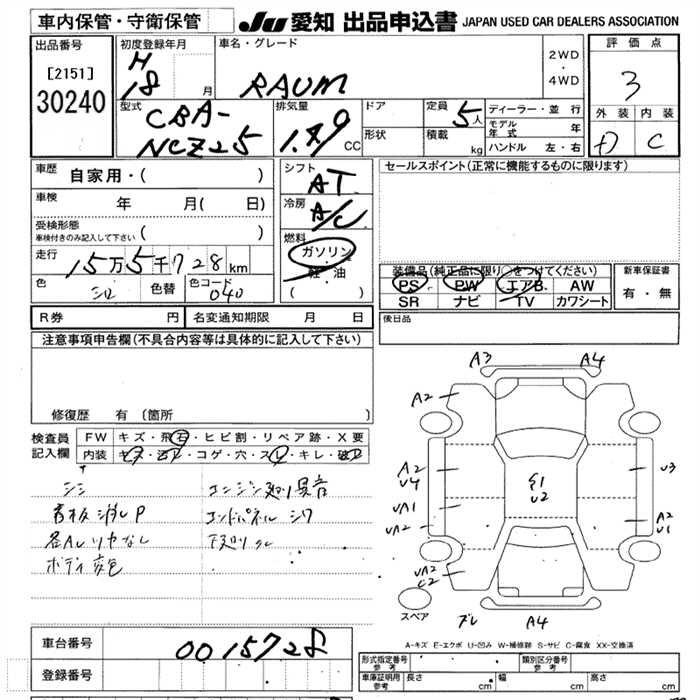 車内保管・守衛保管
JU 愛知 出品申込書 JAPAN USED CAR DEALERS ASSOCIATION
出品番号
[2151]
30240
初度登録年月
H
18 月
車名・グレード
RAUM
2WD
・
4WD
評価点
3
外装 内装
D C
型式
CBA-
NCZ25
排気量
CC
ドア
形状
定員
5人
積載
kg
ディーラー・並行
モデル年式 年
ハンドル 左・右
車歴
自家用・( )
車検 年 月( 日)
受検形態
車検付きのみ記入して下さい ( )
走行 15万5千728km
色 シロ 色替 色コード 040
シフト
AT
冷房
A/C
燃料
ガソリン
軽・油
( )
セールスポイント(正常に機能するものに限ります)
装備品(純正品に限り○をつけてください)
PS PW エアB AW
SR ナビ TV カワシート
新車保証書
有・無
R券 円 名変通知期限 月 日
後日品
注意事項申告欄(不具合内容等は具体的に記入して下さい)
修復歴 有 (箇所
検査員
記入欄
FW キズ・飛石・ヒビ割・リペア跡・X要
内装 キズ・汚レ・コゲ・穴・スレ・キレ・破レ
エンジン 異音
看板消しP エンドパネル シワ
各ALリヤなし
ボディ変色
A3 A4
A2
A2
U4
UA1
UA2
UA2
C2
U3
A2
U1
U2
A4
スペア
A-キズ E-エクボ U-凹み W-補修跡 S-サビ C-腐食 XX-交換済
車台番号 0015728
登録番号
形式指定番号
参考
類別区分番号
参考
車庫証明用
参考
長さ cm 幅 cm 高さ cm